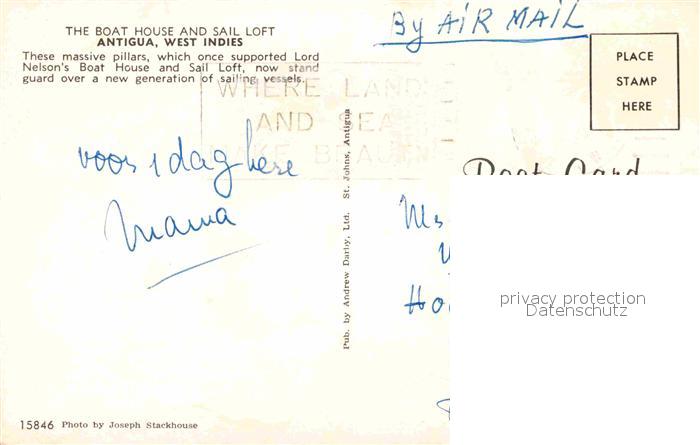 THE BOAT HOUSE AND SAIL LOFT
ANTIGUA, WEST INDIES
These massive pillars, which once supported Lord
Nelson's Boat House and Sail Loft, now stand
guard over a new generation of sailing vessels.
By AIR MAIL
PLACE
STAMP
HERE
WHERE LAND
AND SEA
MAKE BEAUTY
Post Card
voor 1 dag here
Mama
Pub. by Andrew Darby, Ltd. St. Johns, Antigua
Ms
Ho
privacy protection
Datenschutz
15846 Photo by Joseph Stackhouse